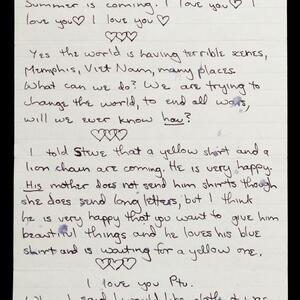 Summer is coming. I love you♡ I
love you♡ I love you♡
♡♡♡
Yes the world is having terrible scenes,
Memphis, Viet Nam, many places
What can we do? We are trying to
change the world, to end all wars,
will we ever know how?
♡♡♡
I told Steve that a yellow shirt and a
lion chain are coming. He is very happy.
His mother does not send him shirts though
she does send long letters, but I think
he is very happy that you want to give him
beautiful things and he loves his blue
shirt and is waiting for a yellow one.
♡♡♡
I love you Ptv.
I said I would like